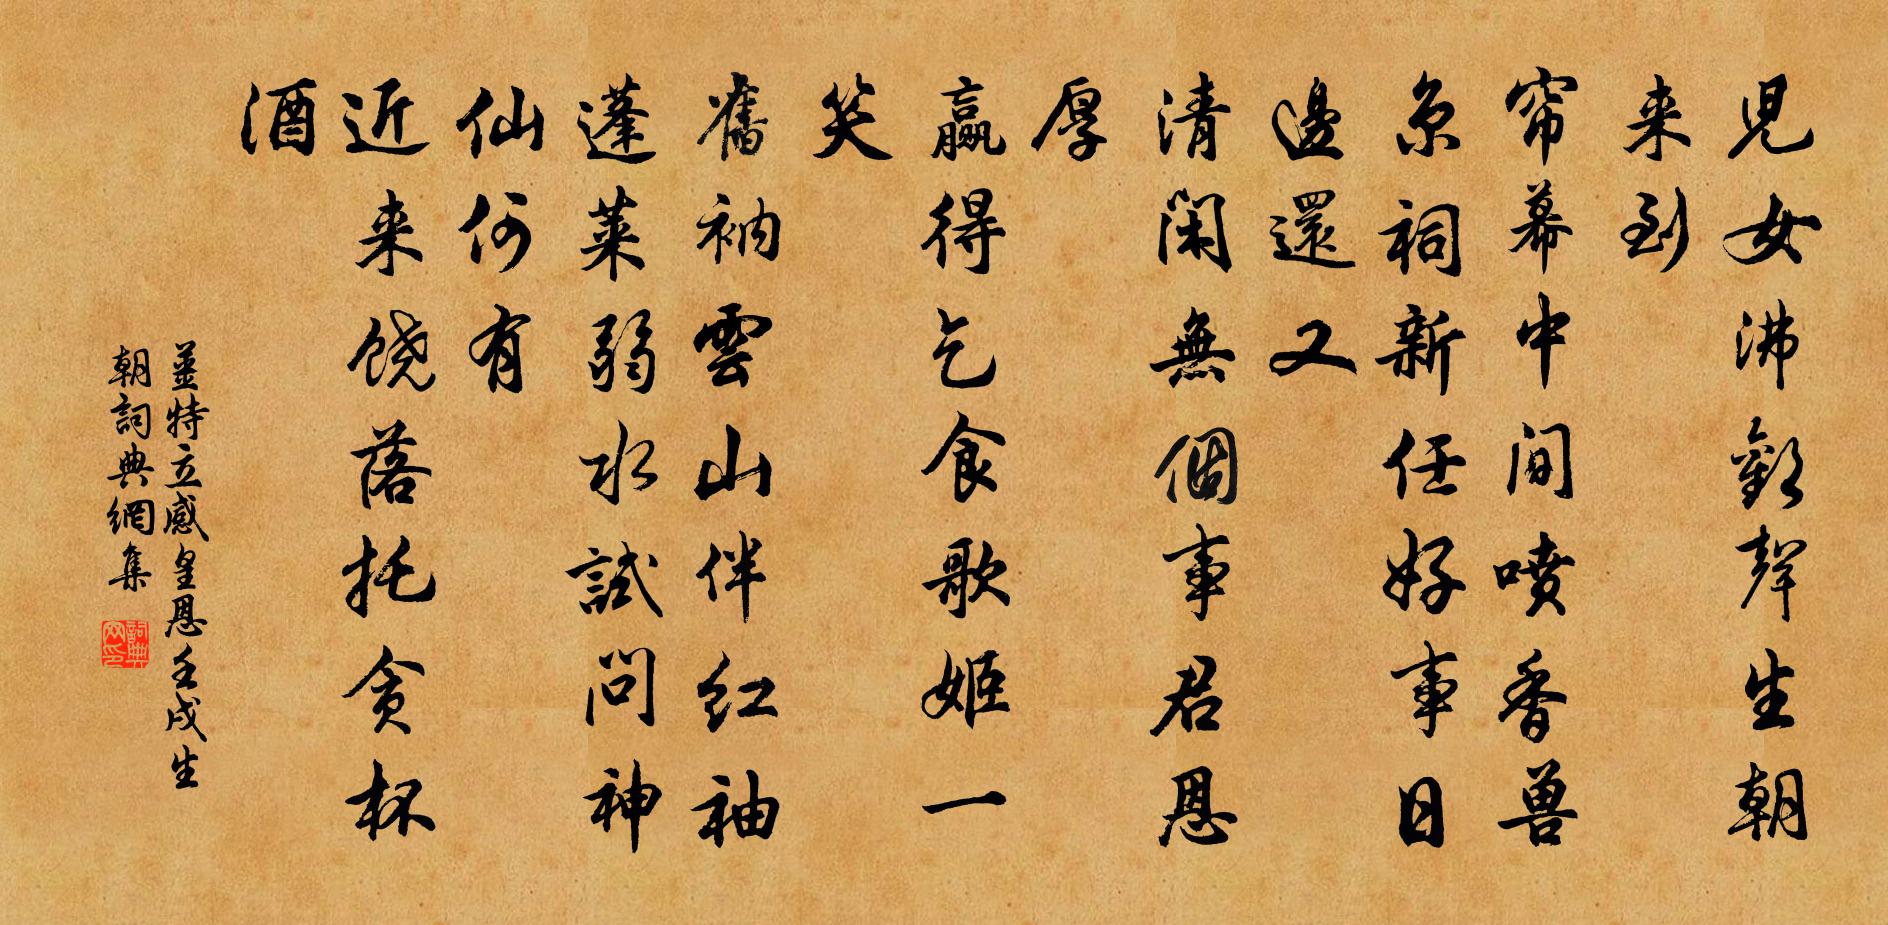 児女沸歡聲生朝
来到
帘幕中间喷香兽
京祠新任好事日
邊還又
清閑無個事君恩
厚
贏得乞食歌姬一
笑
舊衲雲山伴红袖
蓬莱弱水試问神
仙何有
近来饶落托贪杯
酒
薑特立感皇恩壬戌生
朝詞典網集
詞典网印